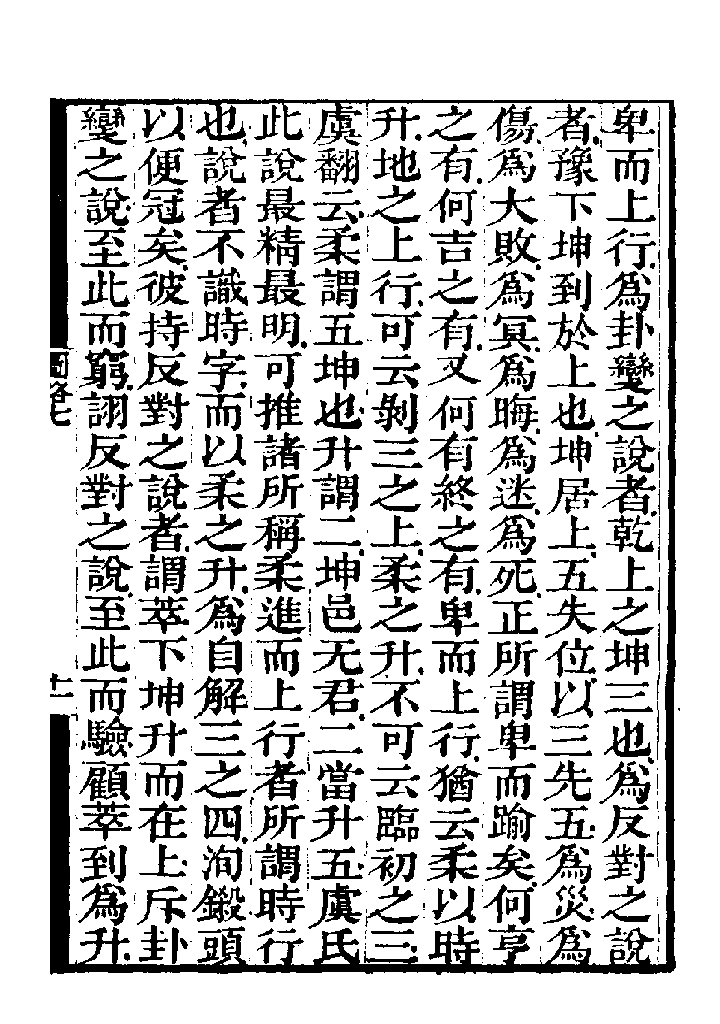 卑而上行爲卦變之說者乾上之坤三也爲反對之說
者豫下坤到於上也坤居上五失位以三先五爲災爲
傷爲大敗爲冥爲晦爲迷爲死正所謂卑而踰矣何亨
之有何吉之有又何有終之有卑而上行猶云柔以時
升地之上行可云剝三之上柔之升不可云臨初之三
虞翻云柔謂五坤也升謂二坤邑无君二當升五虞氏
此說最精最明可推諸所稱柔進而上行者所謂時行
也說者不識時字而以柔之升爲自解三之四洵鍛頭
以便冠矣彼持反對之說者謂萃下坤升而在上斥卦
變之說至此而窮詡反對之說至此而驗顧萃到爲升
圖略七
十一